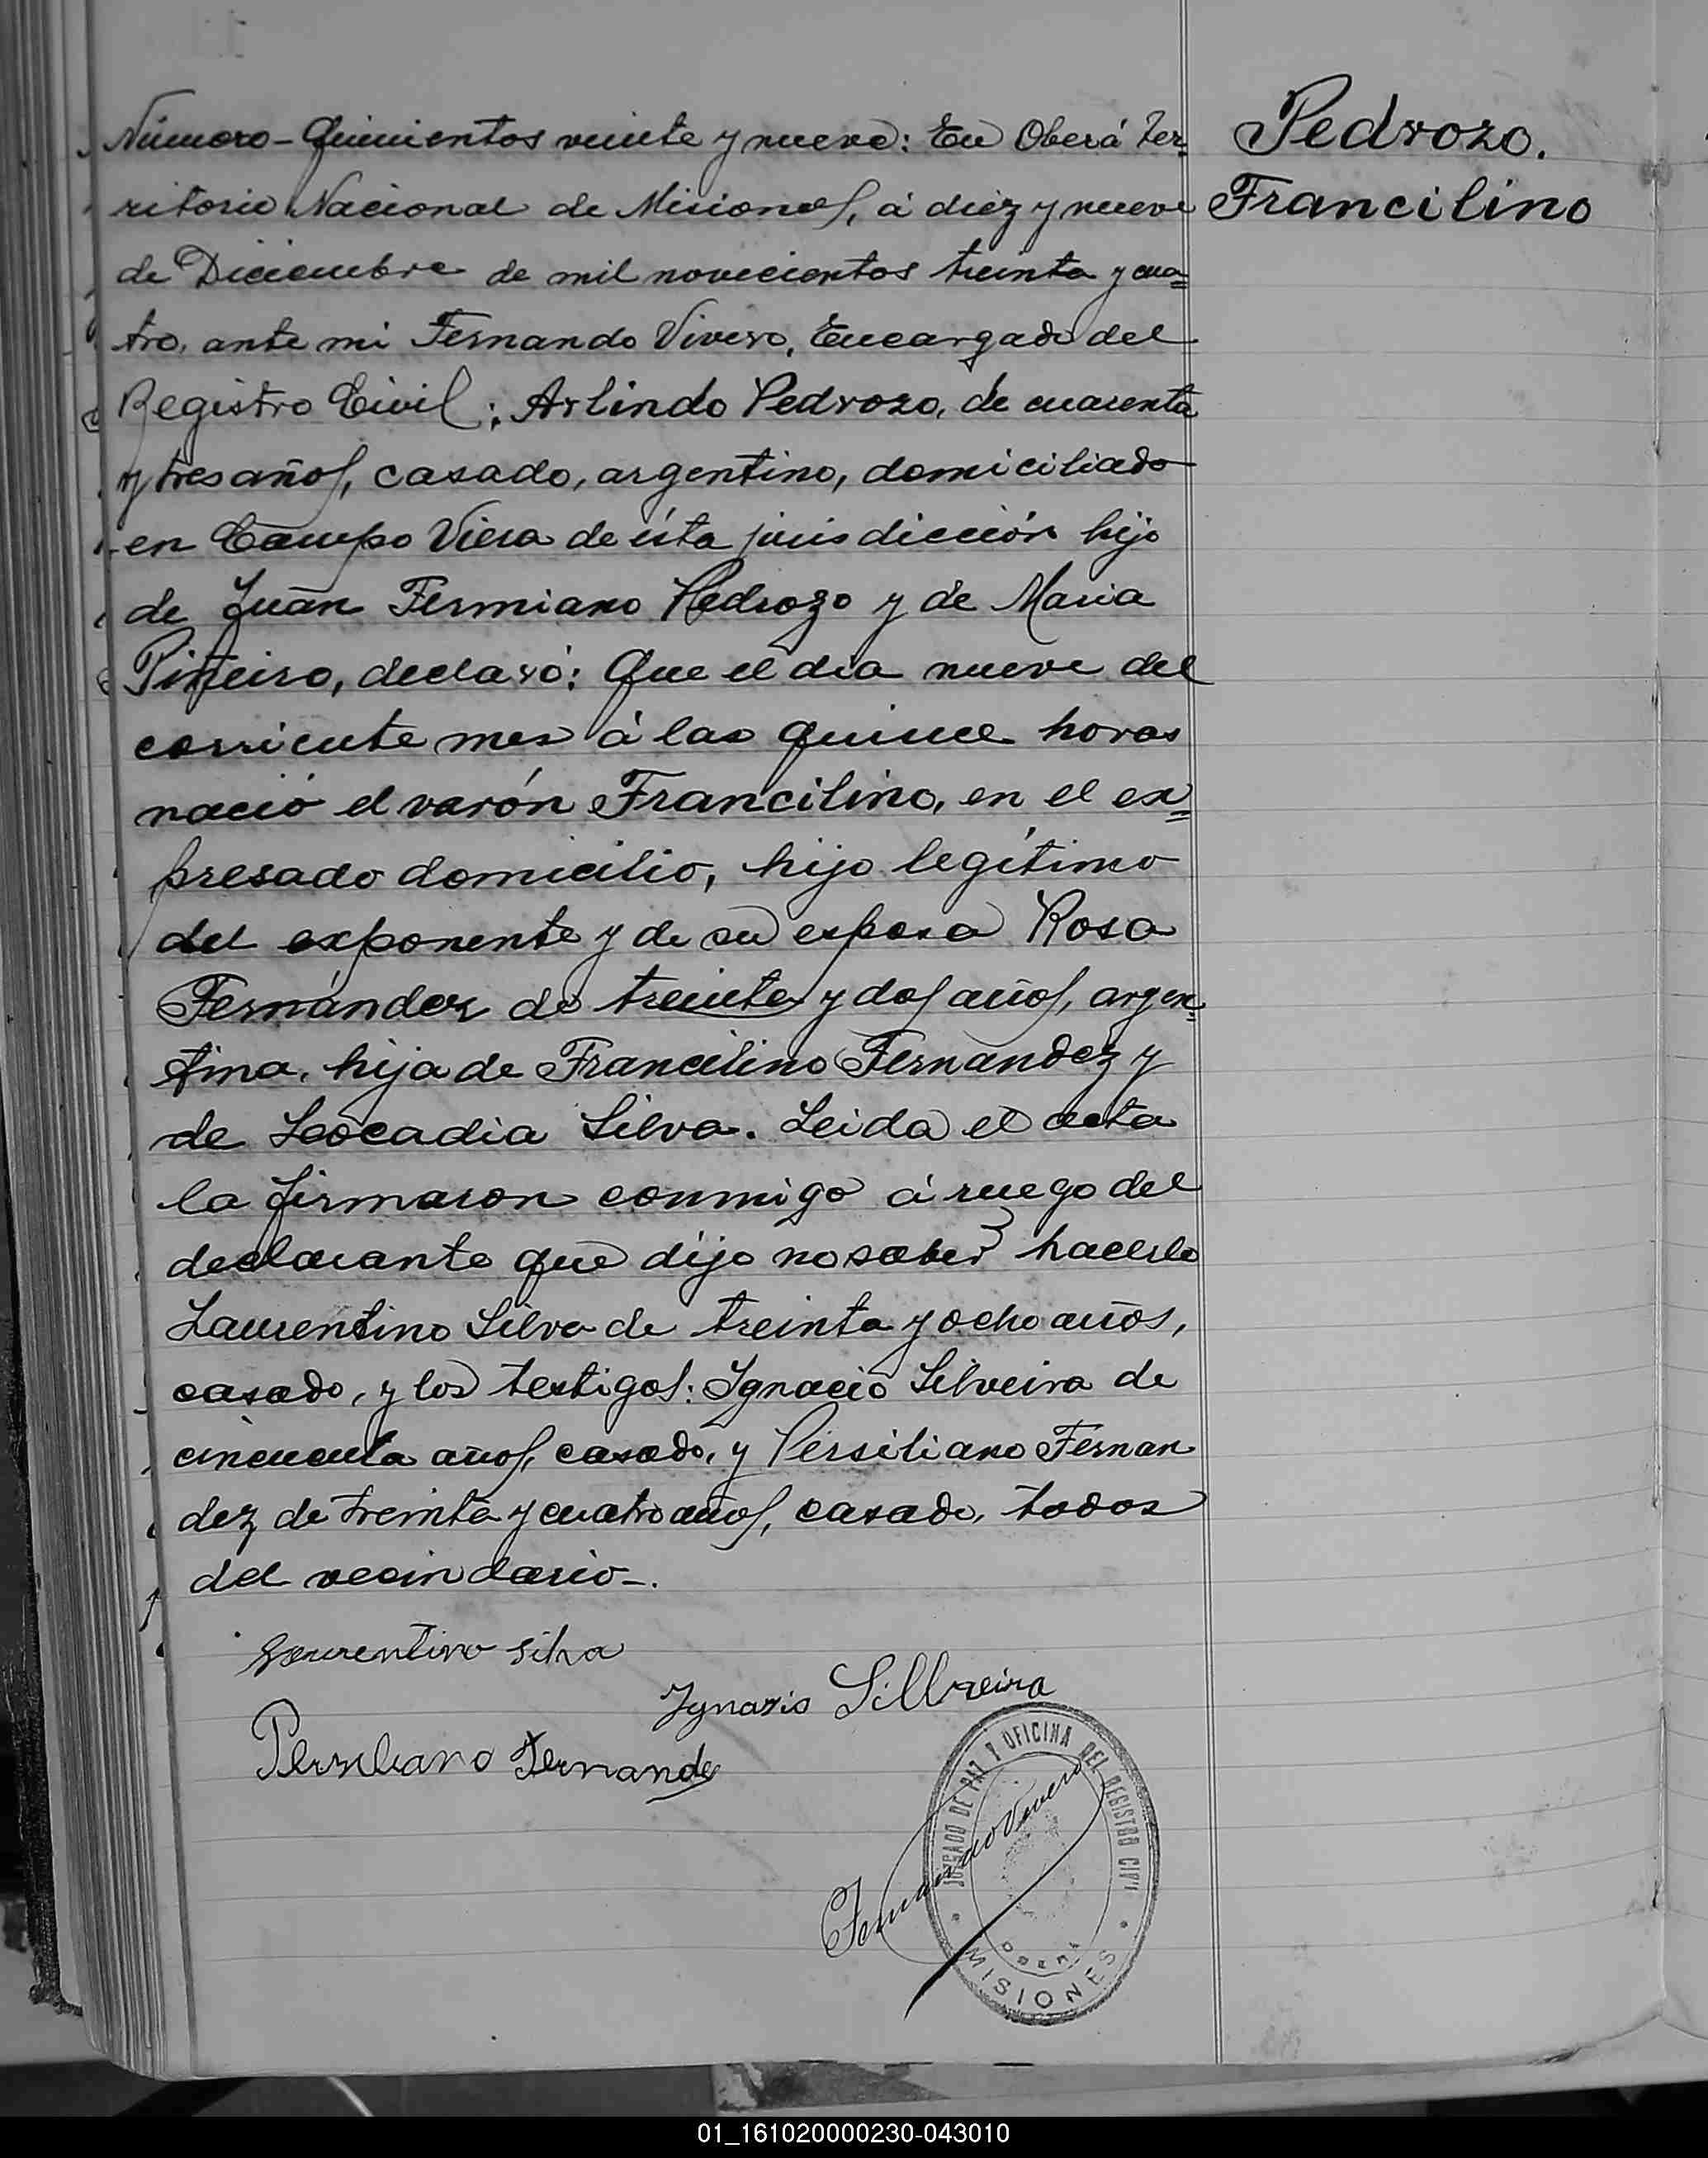 Número - Quinientos veinte y nueve: En Oberá Ter-
ritorio Nacional de Misiones, á diez y nueve
de Diciembre de mil novecientos treinta y cua=
tro, ante mi Fernando Vivero, Encargado del
Registro Civil: Arlindo Pedrozo, de cuarenta
y tres años, casado, argentino, domiciliado
en Campo Viera de ésta jurisdicción hijo
de Juan Fermiano Pedrozo y de Maria
Piñeiro, declaró: Que el dia nueve del
corriente mes á las quince horas
nació el varón Francilino, en el ex=
presado domicilio, hijo legítimo
del exponente y de su esposa Rosa
Fernández de treinta y dos años, argen=
tina, hija de Francilino Fernandez y
de Leocadia Silva. Leida el acta
la firmaron conmigo á ruego del
declarante que dijo no saber hacerlo
Laurentino Silva de treinta y ocho años,
casado, y los testigos: Ignacio Silveira de
cincuenta años, casado, y Persiliano Fernan
dez de treinta y cuatro años, casado, todos
del vecindario-.
Pedrozo.
Francilino
Laurentino Silva
Ignasio Sillveira
Persiliano Fernandez
Fernando Vivero
JUZGADO DE PAZ Y OFICINA DEL REGISTRO CIVIL
OBERA
MISIONES
01_161020000230-043010